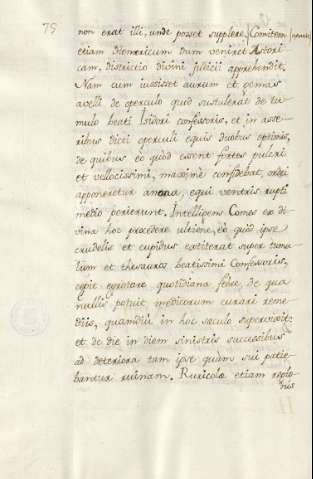 75
non erat illi, unde posset supplere. Comitem
etiam Diomericum dum veniret Astori-
cam, districtio divini judicii apprehendit.
Nam cum iussisset aurum et gemas
avelli de operculo quod sustulerat de tu-
mulo beati Isidori confessoris, et in asse-
ribus dicti operculi equis duobus optimis,
de quibus eo quod essent fortes pulcri
et velocissimi, maxime confidebat, ordei
apponeretur annona, equi ventris rupti
medio perierunt. Intelligens Comes ex di-
vina hoc procedere ultione, eo quod ipse
crudelis et cupidus extiterat super tumu-
lum et thesauros beatissimi Confessoris,
cepit egrotare quotidiana febre, de qua
nullis potuit medicorum curari reme-
diis, quamdiu in hoc saeculo supervixit:
et de die in diem sinistris successibus
ad deteriora tam ipse quam sui patie-
bantur ruinam. Ruricolae etiam regio-
nis